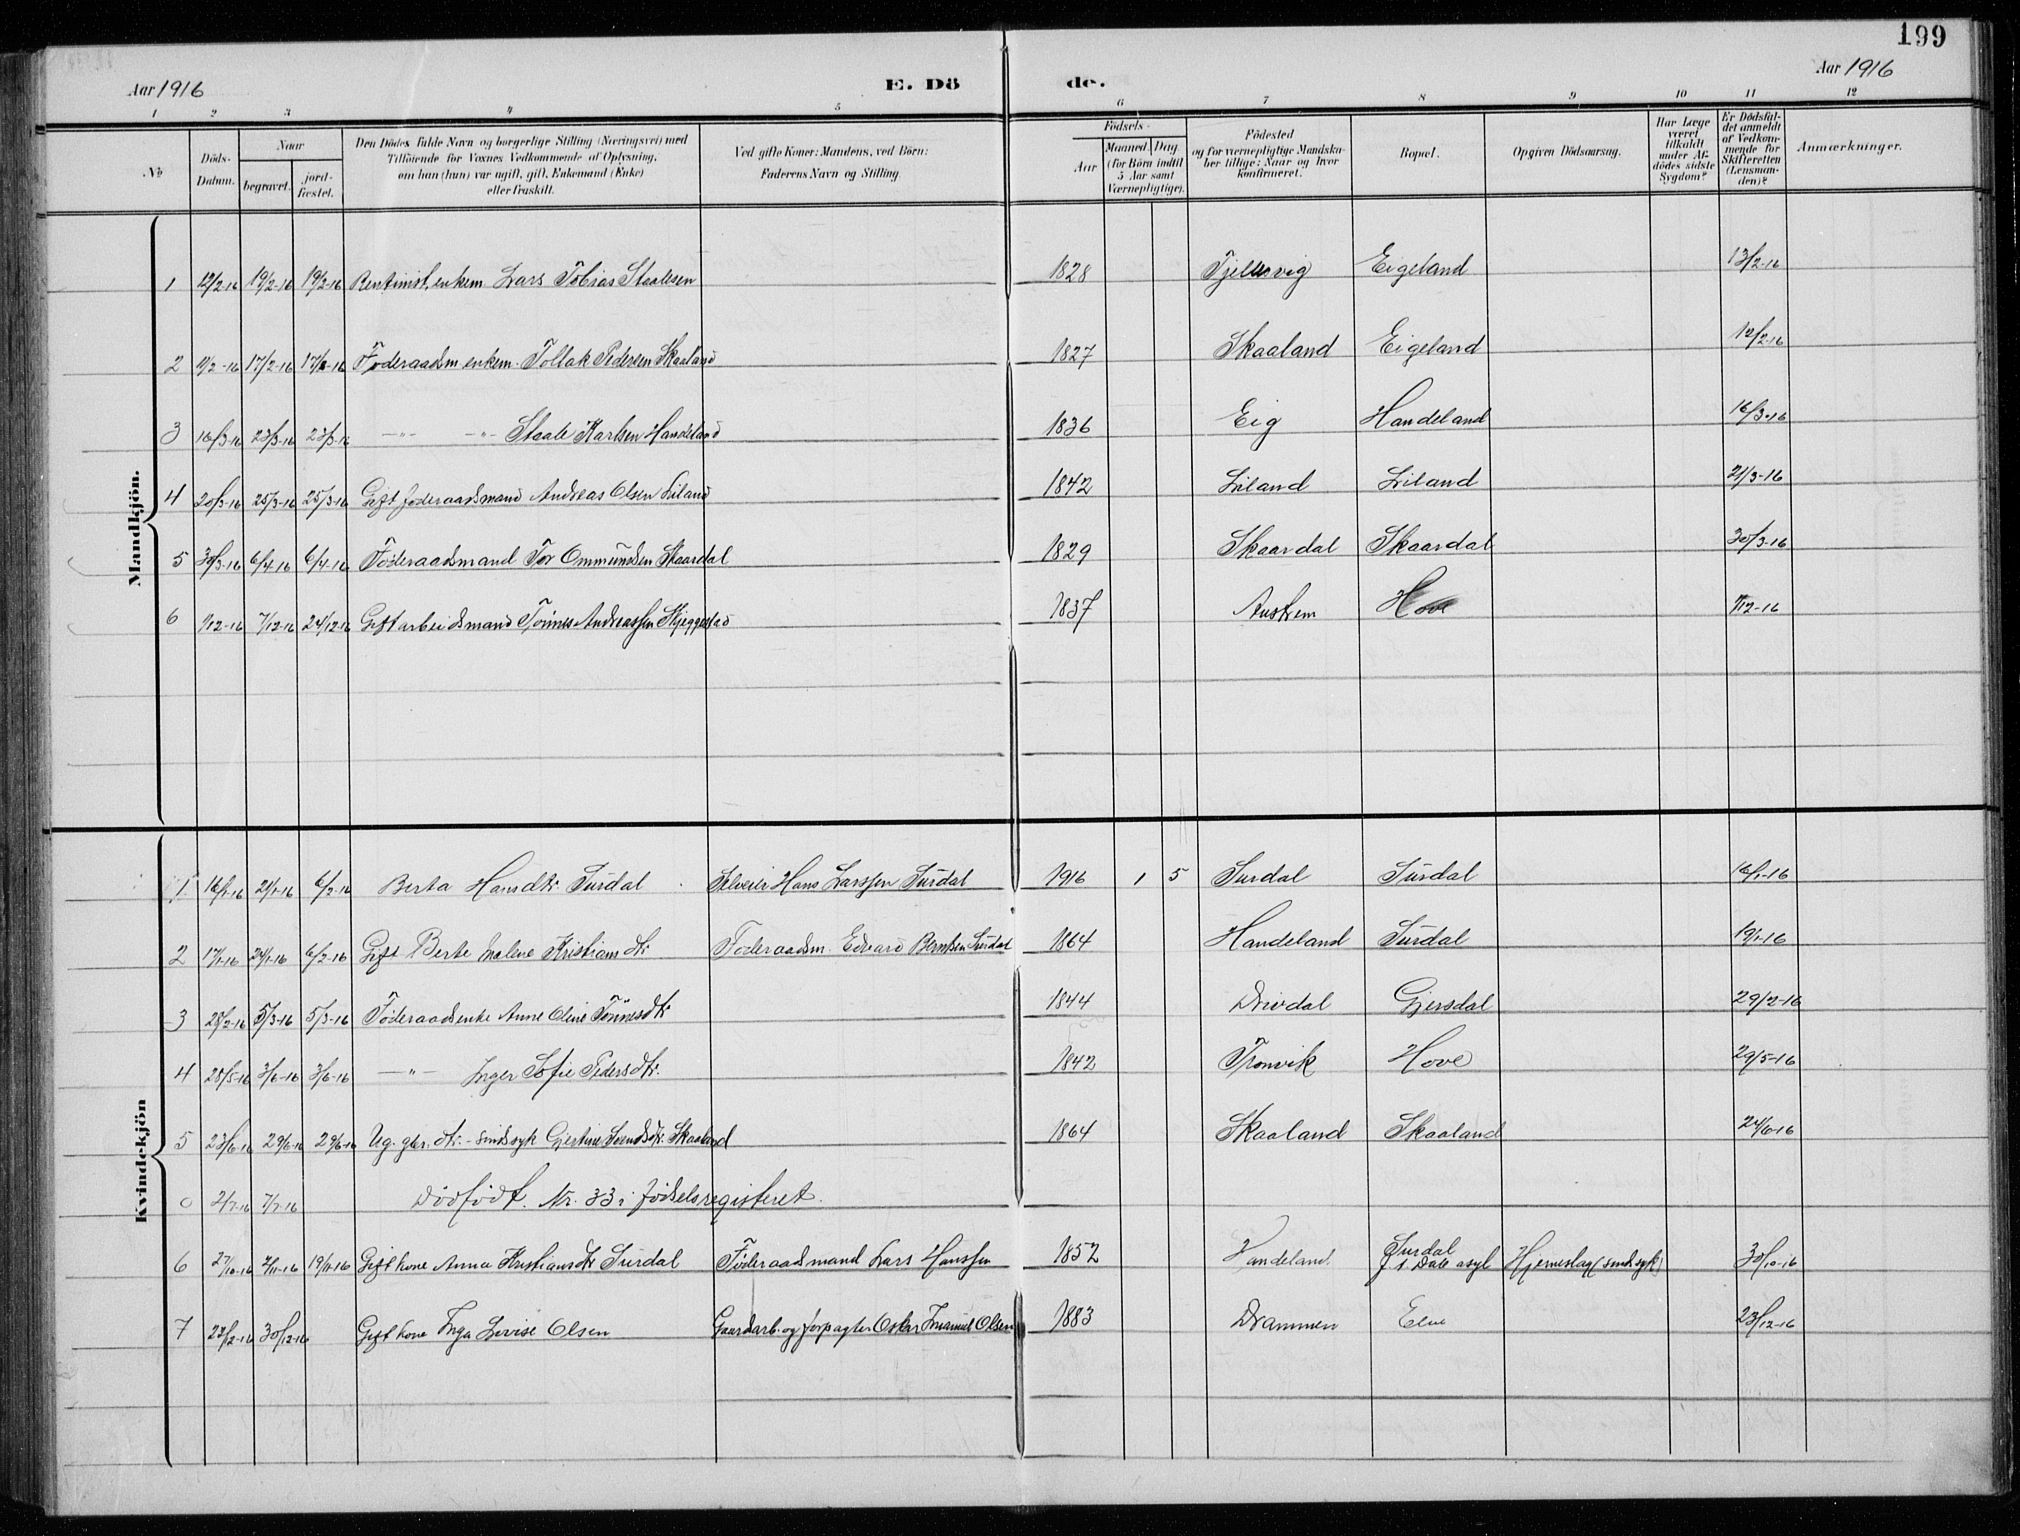 199
Aar 1916
E. Dö
de.
Aar 1916
1 2 3 4 5 6 7 8 9 10 11 12
No
Döds-Datum.
Naar
begravet.
jord-fæstet.
Den Dödes fulde Navn og borgerlige Stilling (Næringsvei) med
Tilföiende for Voxnes Vedkommende af Oplysning,
om han (hun) var ugift, gift, Enkemand (Enke)
eller fraskilt.
Ved gifte Koner: Mandens, ved Börn:
Faderens Navn og Stilling.
Födsels-
Aar
Maaned. Dag.
(for Börn indtil
5 Aar samt
Værnepligtige).
Födested
og for værnepligtige Mandska-
ber tillige: Naar og hvor
konfirmeret.
Bopæl.
Opgiven Dödsaarsag.
Har Læge
været
tilkaldt
under Af-
dödes sidste
Sygdom?
Er Dödsfal-
det anmeldt
af Vedkom-
mende for
Skifteretten
(Lensman-
den)?
Anmærkninger.
Mandkjön.
1 12/2-16 19/2-16 19/2-16 Rentenist, enkem Lars Tobias Staalesen 1828 Tjellesvig Eigeland 13/2-16
2 9/2-16 17/2-16 17/2-16 Føderaadsm. enkem. Tollak Pedersen Skaaland 1827 Skaaland Eigeland 12/2-16
3 16/3-16 23/3-16 23/3-16 —"— —"— Staale Karlsen Handeland 1836 Eig Handeland 16/3-16
4 20/3-16 25/3-16 25/3-16 Gift føderaadsmand Andreas Olsen Liland 1842 Liland Liland 21/3-16
5 30/3-16 6/4-16 6/4-16 Føderaadsmand Tor Ommundsen Skaardal 1829 Skaardal Skaardal 30/3-16
6 1/12-16 7/12-16 24/12-16 Gift arbeidsmand Tønnes Andreassen Skjeggestad 1837 Austrem Hove 1/12-16
Kvindekjön
1. 16/1-16 21/1-16 6/2-16 Berta Hansdtr. Surdal Selveier Hans Larssen Surdal 1916 1 5 Surdal Surdal 16/1-16
2 17/1-16 24/1-16 6/2-16 Gift Berte Malene Kristiansdtr. Føderaadsm. Edvard Berntsen Surdal 1864 Handeland Surdal 19/1-16
3 28/2-16 5/3-16 5/3-16 Føderaadsenke Anne Oline Tønnesdtr. 1844 Drivdal Gjersdal 29/2-16
4 28/5-16 3/6-16 3/6-16 —"— Inger Sofie Pedersdtr. 1842 Tronvik Hove 29/5-16
5 23/6-16 29/6-16 29/6-16 Ug. gbr. dtr. - sindssyk Gjertine Svendsdtr. Skaaland 1864 Skaaland Skaaland 24/6-16
0 2/7-16 7/7-16 Dødfødt. Nr. 33 i fødselsregisteret.
6 27/10-16 4/11-16 19/11-16 Gift kone Anna Kristiansdtr Surdal Føderaadsmand Lars Hanssen 1852 Handeland. Surdal
f. t. Dale asyl Hjerneslag (sindsyk) 30/10-16
7 22/12-16 30/12-16 Gift kone Inga Lovise Olsen Gaardarb. og forpagter Oskar Imanuel Olsen 1883 Drammen Elve 23/12-16